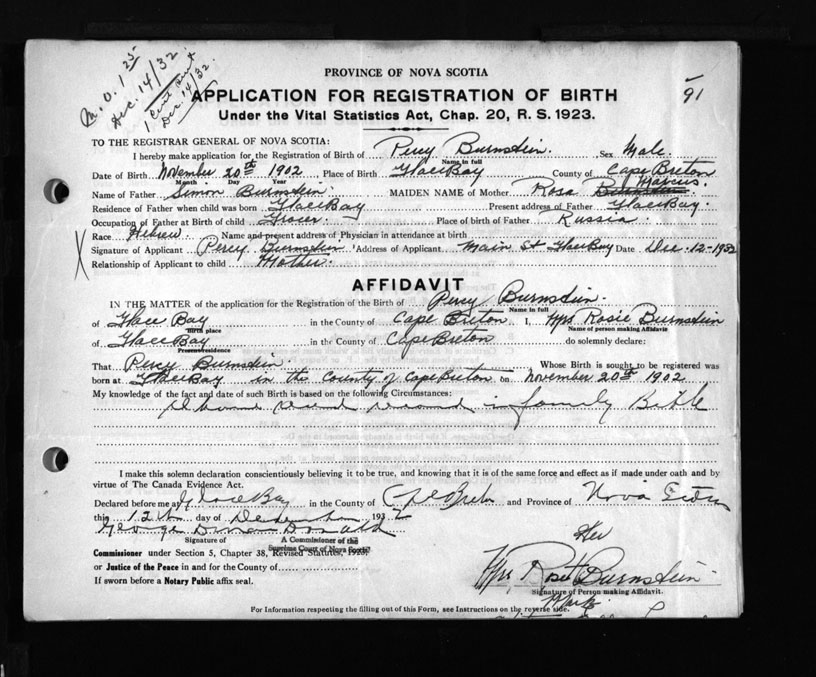 M.O. 1 25
Dec. 14/32
1 Cent
Dec. 14/32
91
PROVINCE OF NOVA SCOTIA
APPLICATION FOR REGISTRATION OF BIRTH
Under the Vital Statistics Act, Chap. 20, R. S. 1923.
TO THE REGISTRAR GENERAL OF NOVA SCOTIA:
I hereby make application for the Registration of Birth of Percy Burnstein. Sex Male.
Name in full
Date of Birth November 20th 1902 Place of Birth Glace Bay County of Cape Breton
Month Day Year
Name of Father Simon Burnstein. MAIDEN NAME of Mother Rosa Marcus.
Residence of Father when child was born Glace Bay Present address of Father Glace Bay.
Occupation of Father at Birth of child Grocer. Place of birth of Father Russia
Race Hebrew Name and present address of Physician in attendance at birth
X Signature of Applicant Percy Burnstein Address of Applicant Main St Glace Bay Date Dec. 12-1932
Relationship of Applicant to child Mother.
AFFIDAVIT
IN THE MATTER of the application for the Registration of the Birth of Percy Burnstein.
Name in full
of Glace Bay in the County of Cape Breton I, Mrs Rosie Burnstein
Birth place Name of person making Affidavit
of Glace Bay in the County of Cape Breton do solemnly declare:
Present residence
That Percy Burnstein. Whose Birth is sought to be registered was
born at Glace Bay in the County of Cape Breton on November 20th 1902
My knowledge of the fact and date of such Birth is based on the following Circumstances:
record in family Bible
I make this solemn declaration conscientiously believing it to be true, and knowing that it is of the same force and effect as if made under oath and by
virtue of The Canada Evidence Act.
Declared before me at Glace Bay in the County of Cape Breton and Province of Nova Scotia
this 12th day of December 1932
George Donald
Signature of A Commissioner of the
Supreme Court of Nova Scotia
Commissioner under Section 5, Chapter 38, Revised Statutes, 1923.
or Justice of the Peace in and for the County of
If sworn before a Notary Public affix seal.
Her
Mrs Rosie Burnstein
Signature of Person making Affidavit.
Mark
For Information respecting the filling out of this Form, see Instructions on the reverse side.